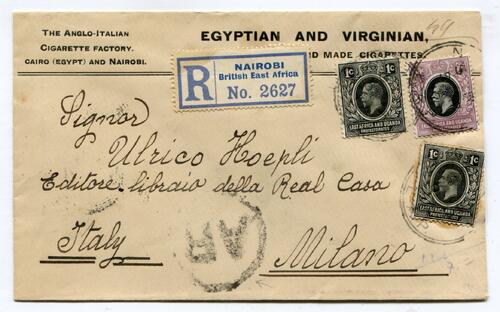 THE ANGLO-ITALIAN
CIGARETTE FACTORY.
CAIRO (EGYPT) AND NAIROBI.
EGYPTIAN AND VIRGINIAN,
MADE CIGARETTES.
R
NAIROBI
British East Africa
No. 2627
1c
1c
EAST AFRICA AND UGANDA
PROTECTORATES
EAST AFRICA AND UGANDA
PROTECTORATES
1c
1c
EAST AFRICA AND UGANDA
PROTECTORATES
Signor
Ulrico Hoepli
Editore-libraio della Real Casa
Italy
Milano
AR